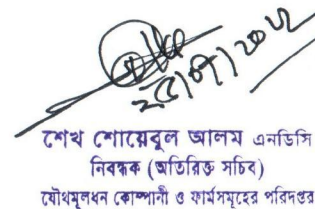 শেখ শোয়েবুল আলম এনডিসি
নিবন্ধক (অতিরিক্ত সচিব)
যৌথমূলধন কোম্পানী ও ফার্মসমূহের পরিদপ্তর